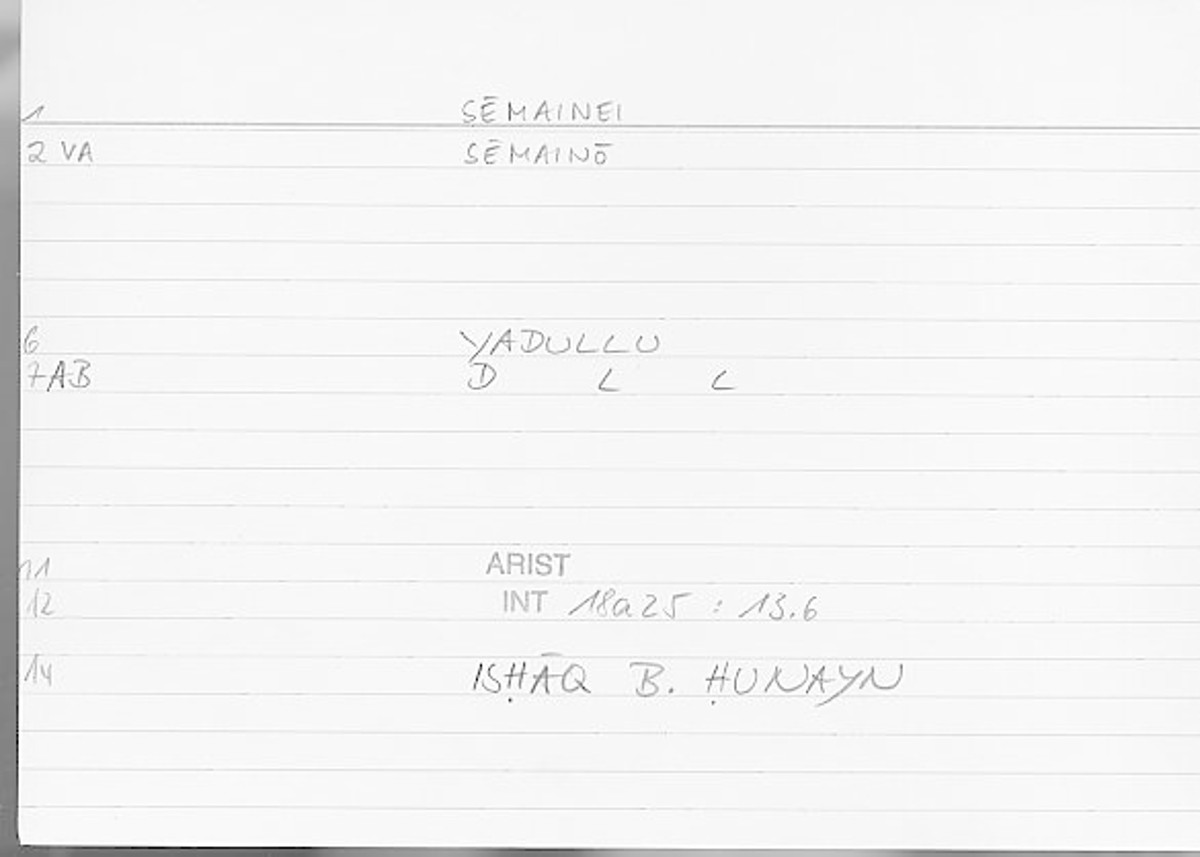 1 SĒMAINEI
2 VA SĒMAINŌ
6 YADULLU
7AB D L L
11 ARIST
12 INT 18a25 : 13.6
14 ISḤĀQ B. ḤUNAYN